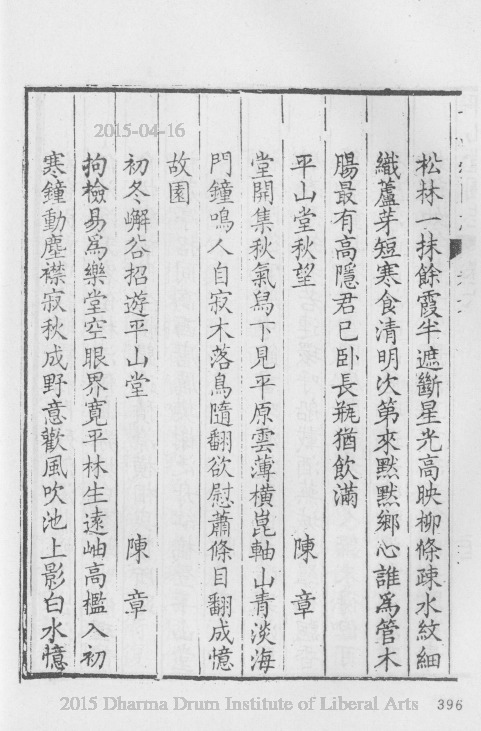 松林一抹餘霞半遮斷星光高映柳條疎水紋細
織蘆芽短寒食清明次第來黙黙鄉心誰爲管木
腸最有高隱君已卧長瓶猶飲滿
平山堂秋望 陳章
堂開集秋氣舄下見平原雲薄橫崑軸山青淡海
門鐘鳴人自寂木落鳥隨翻欲慰蕭條目翻成憶
故園
初冬嶰谷招遊平山堂 陳章
拘檢易爲樂堂空眼界寛平林生遠岫高檻入初
寒鐘動塵襟寂秋成野意歡風吹池上影白水憶
2015-04-16
2015 Dharma Drum Institute of Liberal Arts
396